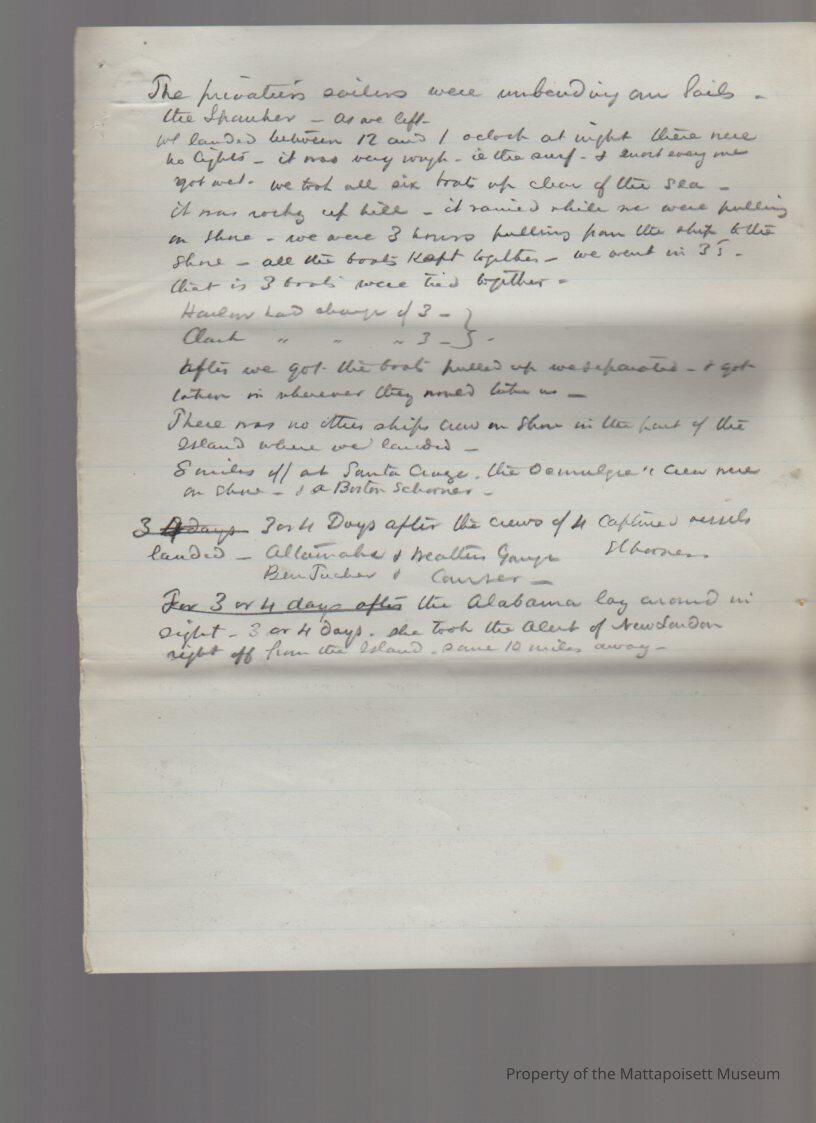 The privatiers sailers were unbending our Sails -
the Spanker - as we left -
we landed between 12 and 1 oclock at night there were
no lights - it was very rough - in the surf - & most every one
got wet - we took all six boats up clear of the sea -
it was rocky up hill - it rained while we were pulling
on shore - we were 3 hours pulling from the ship to the
shore - all the boats kept together - we went in 3s -
that is 3 boats were tied together -
Harlow had charge of 3 - }
Clark " " " 3 - } -
after we got the boats pulled up we separated - & got
taken in wherever they would take us -
There was no other ships crew on shore in the part of the
Island where we landed -
8 miles off at Santa Cruze. the Ocmulgee's crew were
on shore - & a Boston Schooner -
3 4 days - 3 or 4 Days after the crews of 4 captured vessels
landed - Altamaha & Weather Gauge
Ben Tucker & Courser - Schooners
For 3 or 4 days after the Alabama lay around in
sight - 3 or 4 days. she took the Alert of New London
right off from the Island. some 10 miles away -
Property of the Mattapoisett Museum